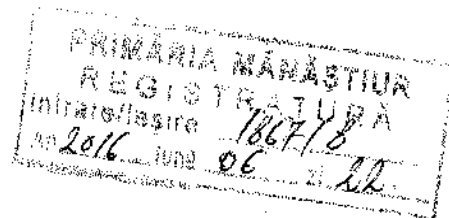 PRIMĂRIA MĂNĂŞTIUR
REGISTRATURĂ
Intrare/Ieşire 1867/8
An 2016 luna 06 zi 22